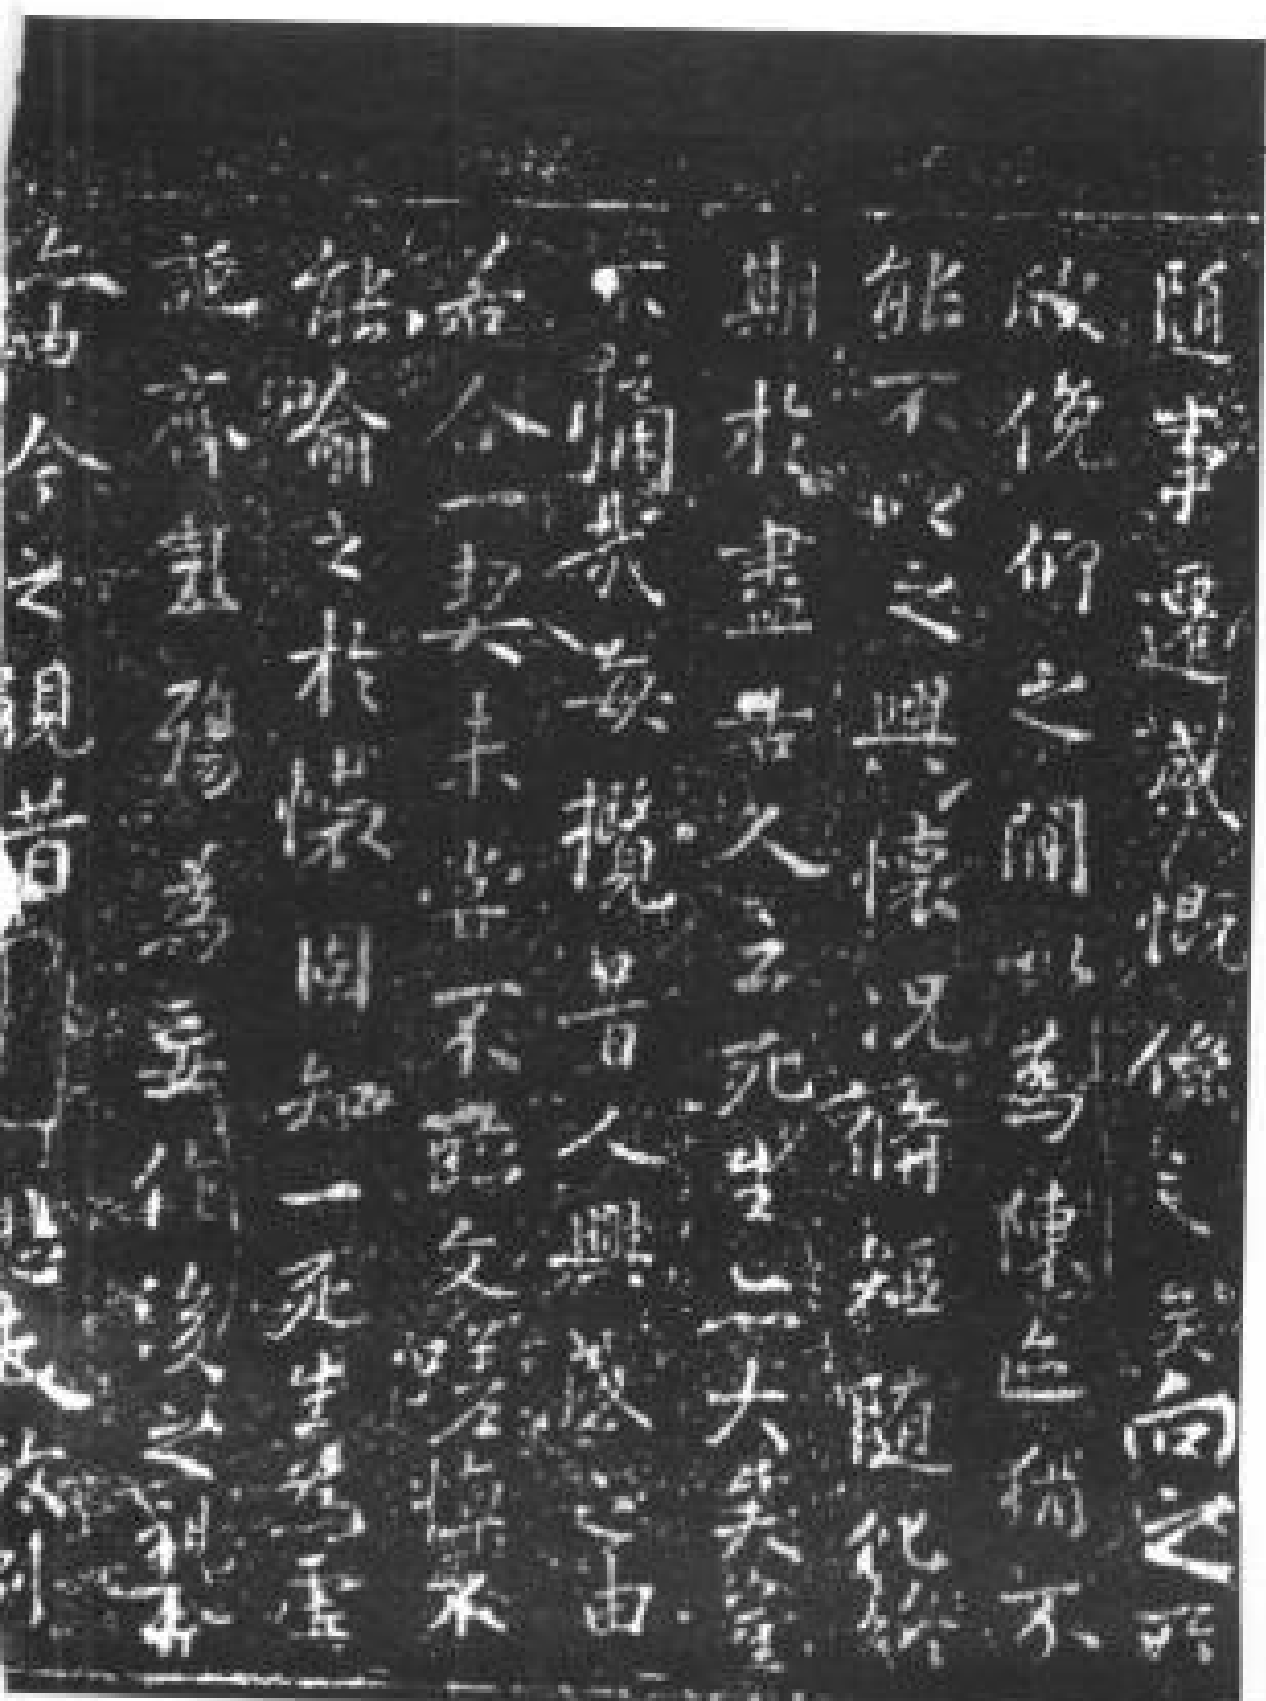 隨事遷感慨係之矣向之所
欣俛仰之間以為陳迹猶不
能不以之興懷況脩短隨化終
期於盡古人云死生亦大矣豈
不痛哉每攬昔人興感之由
若合一契未嘗不臨文嗟悼不
能喻之於懷固知一死生為虛
誕齊彭殤為妄作後之視今
亦由今之視昔悲夫故列